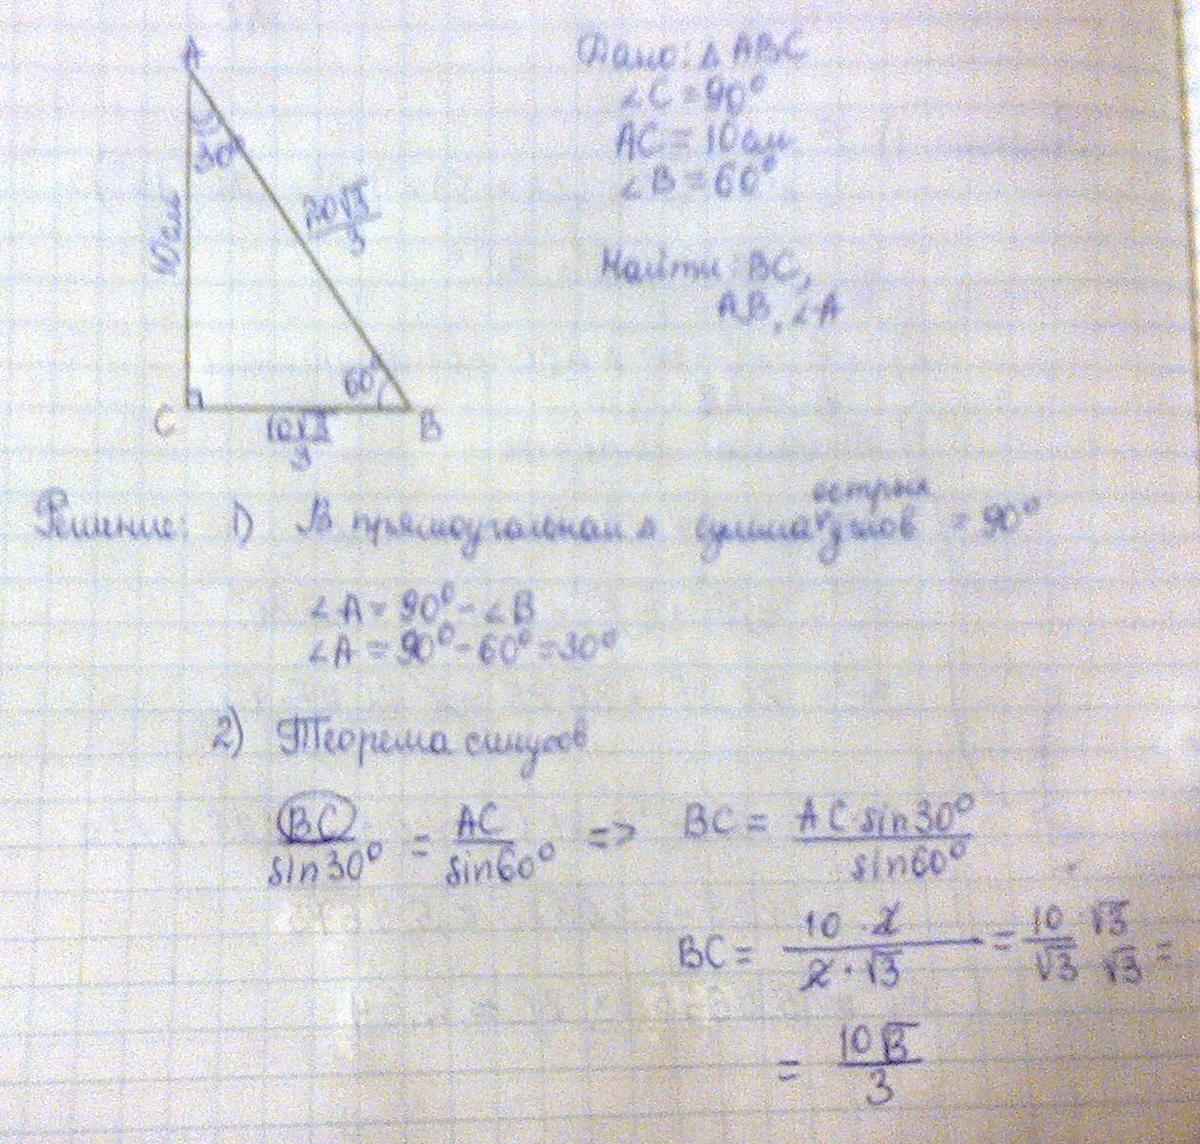 A
30°
10 см
20√3/3
60°
C
B
10√3/3
Дано: Δ ABC
∠C = 90°
AC = 10 см
∠B = 60°
Найти: BC,
AB, ∠A
острых
Решение: 1) В прямоугольном Δ сумма углов = 90°
∠A = 90° - ∠B
∠A = 90° - 60° = 30°
2) Теорема синусов
BC/sin30° = AC/sin60° => BC = AC·sin30°/sin60°
BC = 10·2/2·√3 = 10/√3 √3/√3 =
= 10√3/3